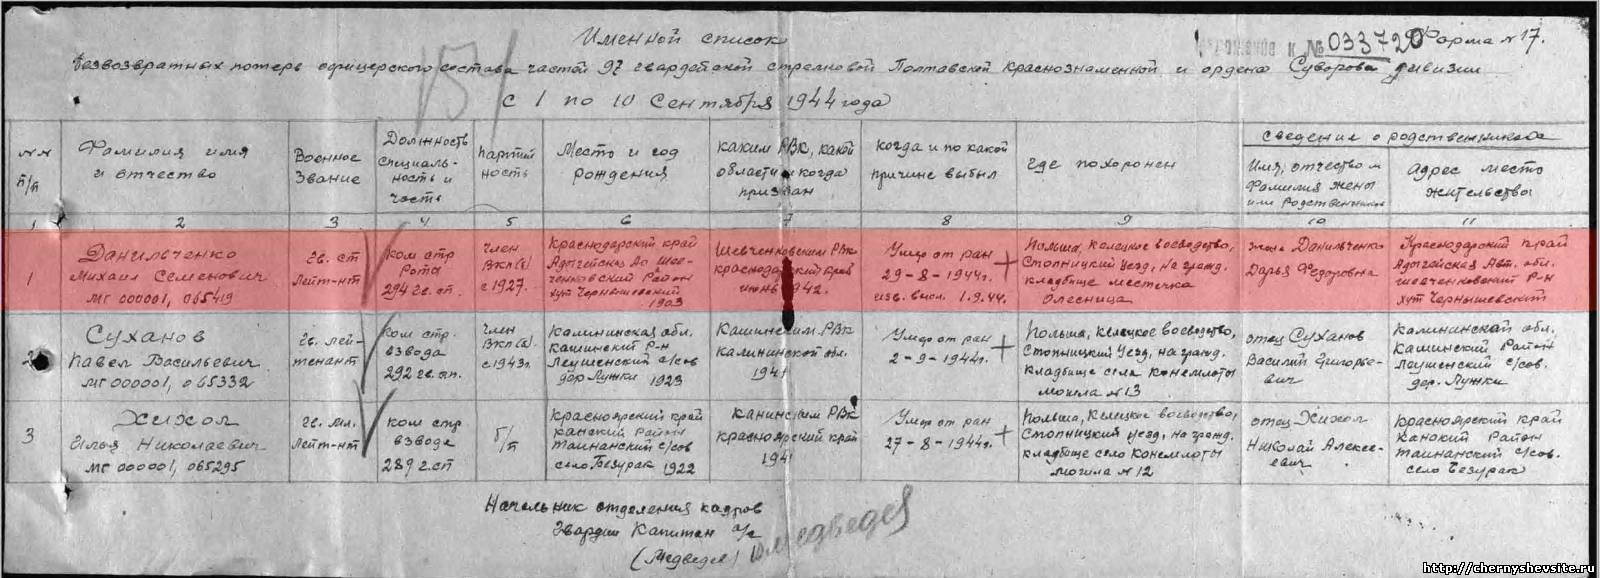 Именной список
к № 033720 Форма № 17.
безвозвратных потерь офицерского состава частей 97 гвардейской стрелковой Полтавской Краснознаменной и ордена Суворова дивизии
с 1 по 10 Сентября 1944 года
151
№№ п/п
Фамилия имя
и отчество
Военное
Звание
Должность
специаль-
ность и
часть
партий
ность
Место и год
рождения
каким РВК, какой
области и когда
призван
когда и по какой
причине выбыл
где похоронен
сведение о родственниках
Имя, отчество и
Фамилия жены
или родственников
адрес место
жительства
1 2 3 4 5 6 7 8 9 10 11
1
Данильченко
Михаил Семенович
МГ 000001, 065419
гв. ст
лейт-нт
ком стр
Рота
294 гв. сп.
член
ВКП(б)
с 1927.
Краснодарский край
Адыгейская Ао Шев-
ченковский Район
хут Чернышевский
1903
Шевченковским РВК
краснодарский край
июнь 1942.
Умер от ран
29-8-1944г.
изв. высл. 1.9.44.
Польша, Келецкое воеводство,
Стопницкий уезд, на гражд.
кладбище местечка
Олесница
жена Данильченко
Дарья Федоровна
Краснодарский край
Адыгейская Авт. обл.
шевченковский Р-н
хут Чернышевский
2
Суханов
Павел Васильевич
МГ 000001, 065332
гв. лей-
тенант
ком стр.
взвода
292 гв. сп.
член
ВКП(б).
с 1943г.
Калининская обл.
Кашинский Р-н
Леушенский с/сов
дер Лужки 1923
Кашинским РВК
калининской обл.
1941
Умер от ран
2-9-1944г.
Польша, Келецкое воеводство,
Стопницкий Уезд, на гражд.
кладбище села Конемлоты
могила №13
отец Суханов
Василий Григорье-
вич
Калининской обл.
Кашинский Район
Леушенский с/сов.
дер. Лужки
3
Хихол
Илья Николаевич
МГ 000001, 065295
гв. мл.
лейт-нт
ком стр
взвода
289 г. сп
б/п
Красноярский край
Канский Район
Таинанский с/сов
село Безурак 1922
канинским РВК
красноярский край
1941
Умер от ран
27-8-1944г.
Польша, Келецкое воеводство,
Стопницкий уезд, на гражд.
кладбище село Конемлоты
могила №12
отец Хихол
Николай Алексе-
евич
Красноярский край
Канский Район
Таинанский с/сов.
село Безурак
Начальник отделения кадров
Гвардии Капитан а/с
(Медведев) Медведев
http://chernyshevsite.ru